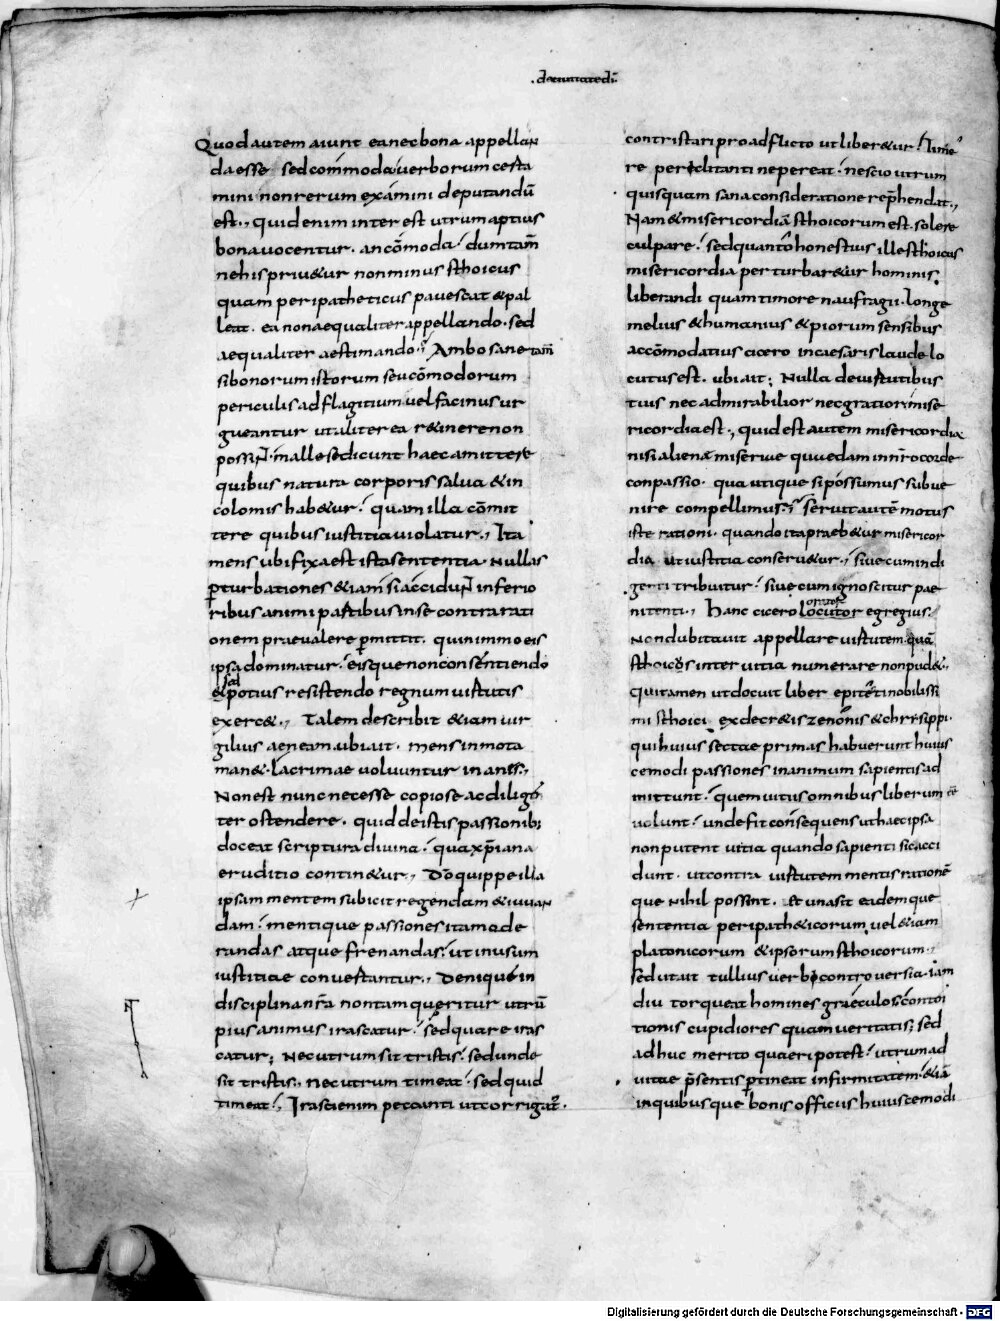 .deciuitatedi.
Quod autem aiunt ea nec bona appellan
da esse sed commoda uerborum certa
mini non rerum examini deputandū
est., quid enim inter est utrum aptius
bona uocentur. an cōmoda. dum tam̄
ne his priu&ur non minus sthoicus
quam peripatheticus pauescat & pal
leat. ea non aequaliter appellando. sed
aequaliter aestimando. Ambo sane tam̄
si bonorum istorum seu cōmodorum
periculis ad flagitium uel facinus ur
gueantur ut aliter ea r&inere non
possint. malle se dicunt haec amittere
quibus natura corporis salua & in
colomis hab&ur. quam illa cōmit
tere quibus iustitia uiolatur., Ita
mens ubi fixa est ista sententia Nullas
p̲turbationes &iam si accidunt inferio
ribus animi partibus in se contra rati
onem praeualere p̲mittit. quin immo eis
ipsa dominatur. eisque non consentiendo
sed
& potius resistendo regnum uirtutis
exerc&., Talem describit &iam uir
gilius aenean. ubi ait. mens inmota
man&. lacrimae uoluuntur inanes.,
Non est nunc necesse copiose ac diligen
ter ostendere. quid de istis passionib;
doceat scriptura diuina. qua xp̄iana
eruditio contin&ur., Dō quippe illa
ipsam mentem subicit regendam & iuuan
dam. mentique passiones ita mode
randas atque frenandas. ut in usum
iustitiae conuertantur., Denique in
disciplina nr̄a non tam queritur utrū
pius animus irascatur. sed quare iras
catur; Nec utrum sit tristis. sed unde
sit tristis., nec utrum timeat. sed quid
timeat., Irasci enim peccanti ut corrigat̄.
contristari pro adflicto ut liber&ur. Time
re periclitanti ne pereat. nescio utrum
quisquam sana consideratione rep̄hendat.,
Nam & misericordiā sthoicorum est. solere
culpare. sed quanto honestius ille sthoicus
misericordia perturbar&ur hominis
liberandi quam timore naufragii. longe
melius & humanius & piorum sensibus
accōmodatius cicero in caesaris laude lo
cutus est. ubi ait; Nulla de uirtutibus
tuis nec admirabilior nec gratior mise
ricordia est., quid est autem misericordia
nisi alienae miseriae quaedam in nr̄o corde
conpassio. qua utique si possumus subue
nire compellimur. seruit autē motus
iste rationi. quando ita praeb&ur misericor
dia. ut iustitia conseru&ur., siue cum indi
genti tribuitur. siue cum ignoscitur pae
nitenti., Hanc cicero locutor egregius.
Non dubitauit appellare uirtutem. quā
sthoicos inter uitia numerare non pud&.
qui tamen ut docuit liber epitecti nobilissi
mi sthoici ex decr&is zenonis & chrisippi.
qui huius sectae primas habuerunt huius
cemodi passiones in animum sapientis ad
mittunt. quem uitiis omnibus liberum eē
uolunt. unde fit consequens ut haec ipsa
non putent uitia quando sapienti sic acci
dunt. ut contra uirtutem mentis rationē
que nihil possint. et una sit eademque
sententia peripath&icorum. uel &iam
platonicorum & ipsorum sthoicorum.,
sed ut ait tullius uerbi controuersia. iam
diu torqueat homines graeculos. contoi
tionis cupidiores quam ueritatis; sed
adhuc merito quaeri potest. utrum ad
uitae p̄sentis p̲tineat infirmitatem. &iā
in quibusque bonis officiis huiuscemodi
Digitalisierung gefördert durch die Deutsche Forschungsgemeinschaft - DFG